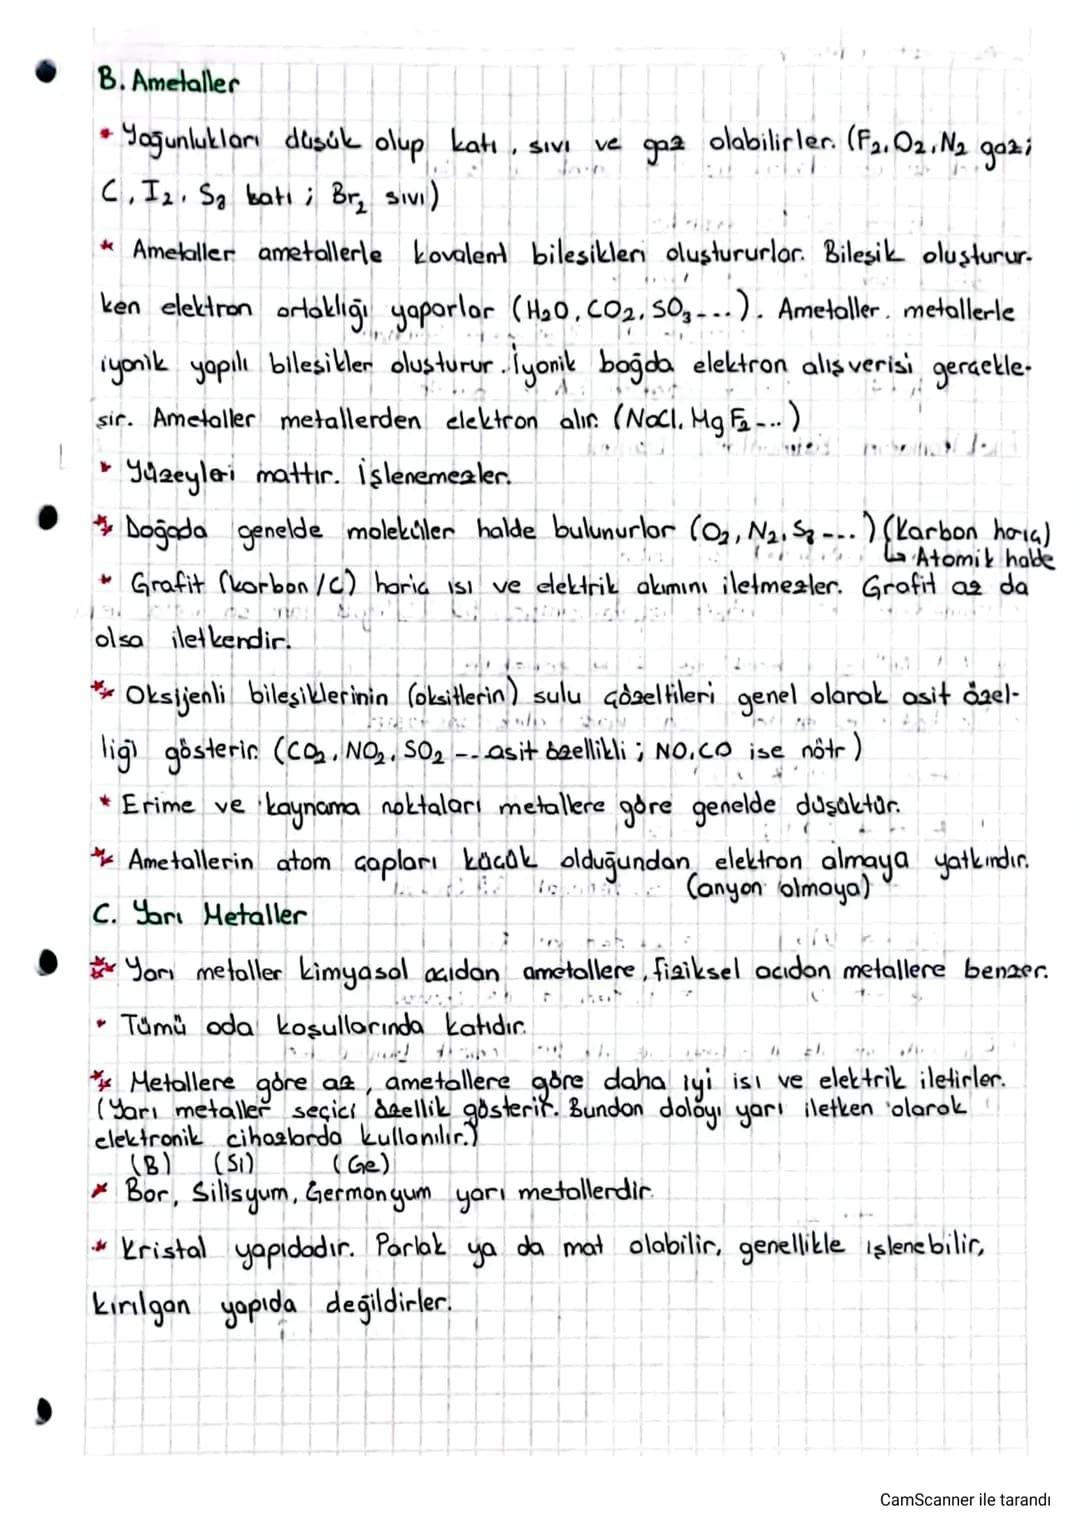 B. Ametaller
* Yoğunlukları düşük olup katı, sıvı ve gaz olabilirler. (F₂, O₂, N₂ gaz;
C, I₂, S₈ katı; Br₂ sıvı)
* Ametaller ametallerle kovalent bileşikleri oluştururlar. Bileşik oluşturur-
ken elektron ortaklığı yaparlar (H₂O, CO₂, SO₃---). Ametaller, metallerle
iyonik yapılı bileşikler oluşturur. İyonik bağda elektron alışverişi gerçekle-
şir. Ametaller metallerden elektron alır. (NaCl, MgF₂---)
* Yüzeyleri mattır. İşlenemezler.
* Doğada genelde moleküler halde bulunurlar (O₂, N₂, S₈---) (Karbon hariç)
↳ Atomik halde
* Grafit (karbon/C) hariç ısı ve elektrik akımını iletmezler. Grafit az da
olsa iletkendir.
* Oksijenli bileşiklerinin (oksitlerin) sulu çözeltileri genel olarak asit özel-
liği gösterir. (CO₂, NO₂, SO₂ --- asit özellikli; NO, CO ise nötr)
* Erime ve kaynama noktaları metallere göre genelde düşüktür.
* Ametallerin atom çapları küçük olduğundan elektron almaya yatkındır.
(anyon olmaya)
C. Yarı Metaller
* Yarı metaller kimyasal açıdan ametallere, fiziksel açıdan metallere benzer.
* Tümü oda koşullarında katıdır.
* Metallere göre az, ametallere göre daha iyi ısı ve elektrik iletirler.
(Yarı metaller seçici özellik gösterir. Bundan dolayı yarı iletken olarak
elektronik cihazlarda kullanılır.)
(B) (Si) (Ge)
* Bor, Silisyum, Germanyum yarı metallerdir.
* Kristal yapıdadır. Parlak ya da mat olabilir, genellikle işlenebilir,
kırılgan yapıda değildirler.
CamScanner ile tarandı